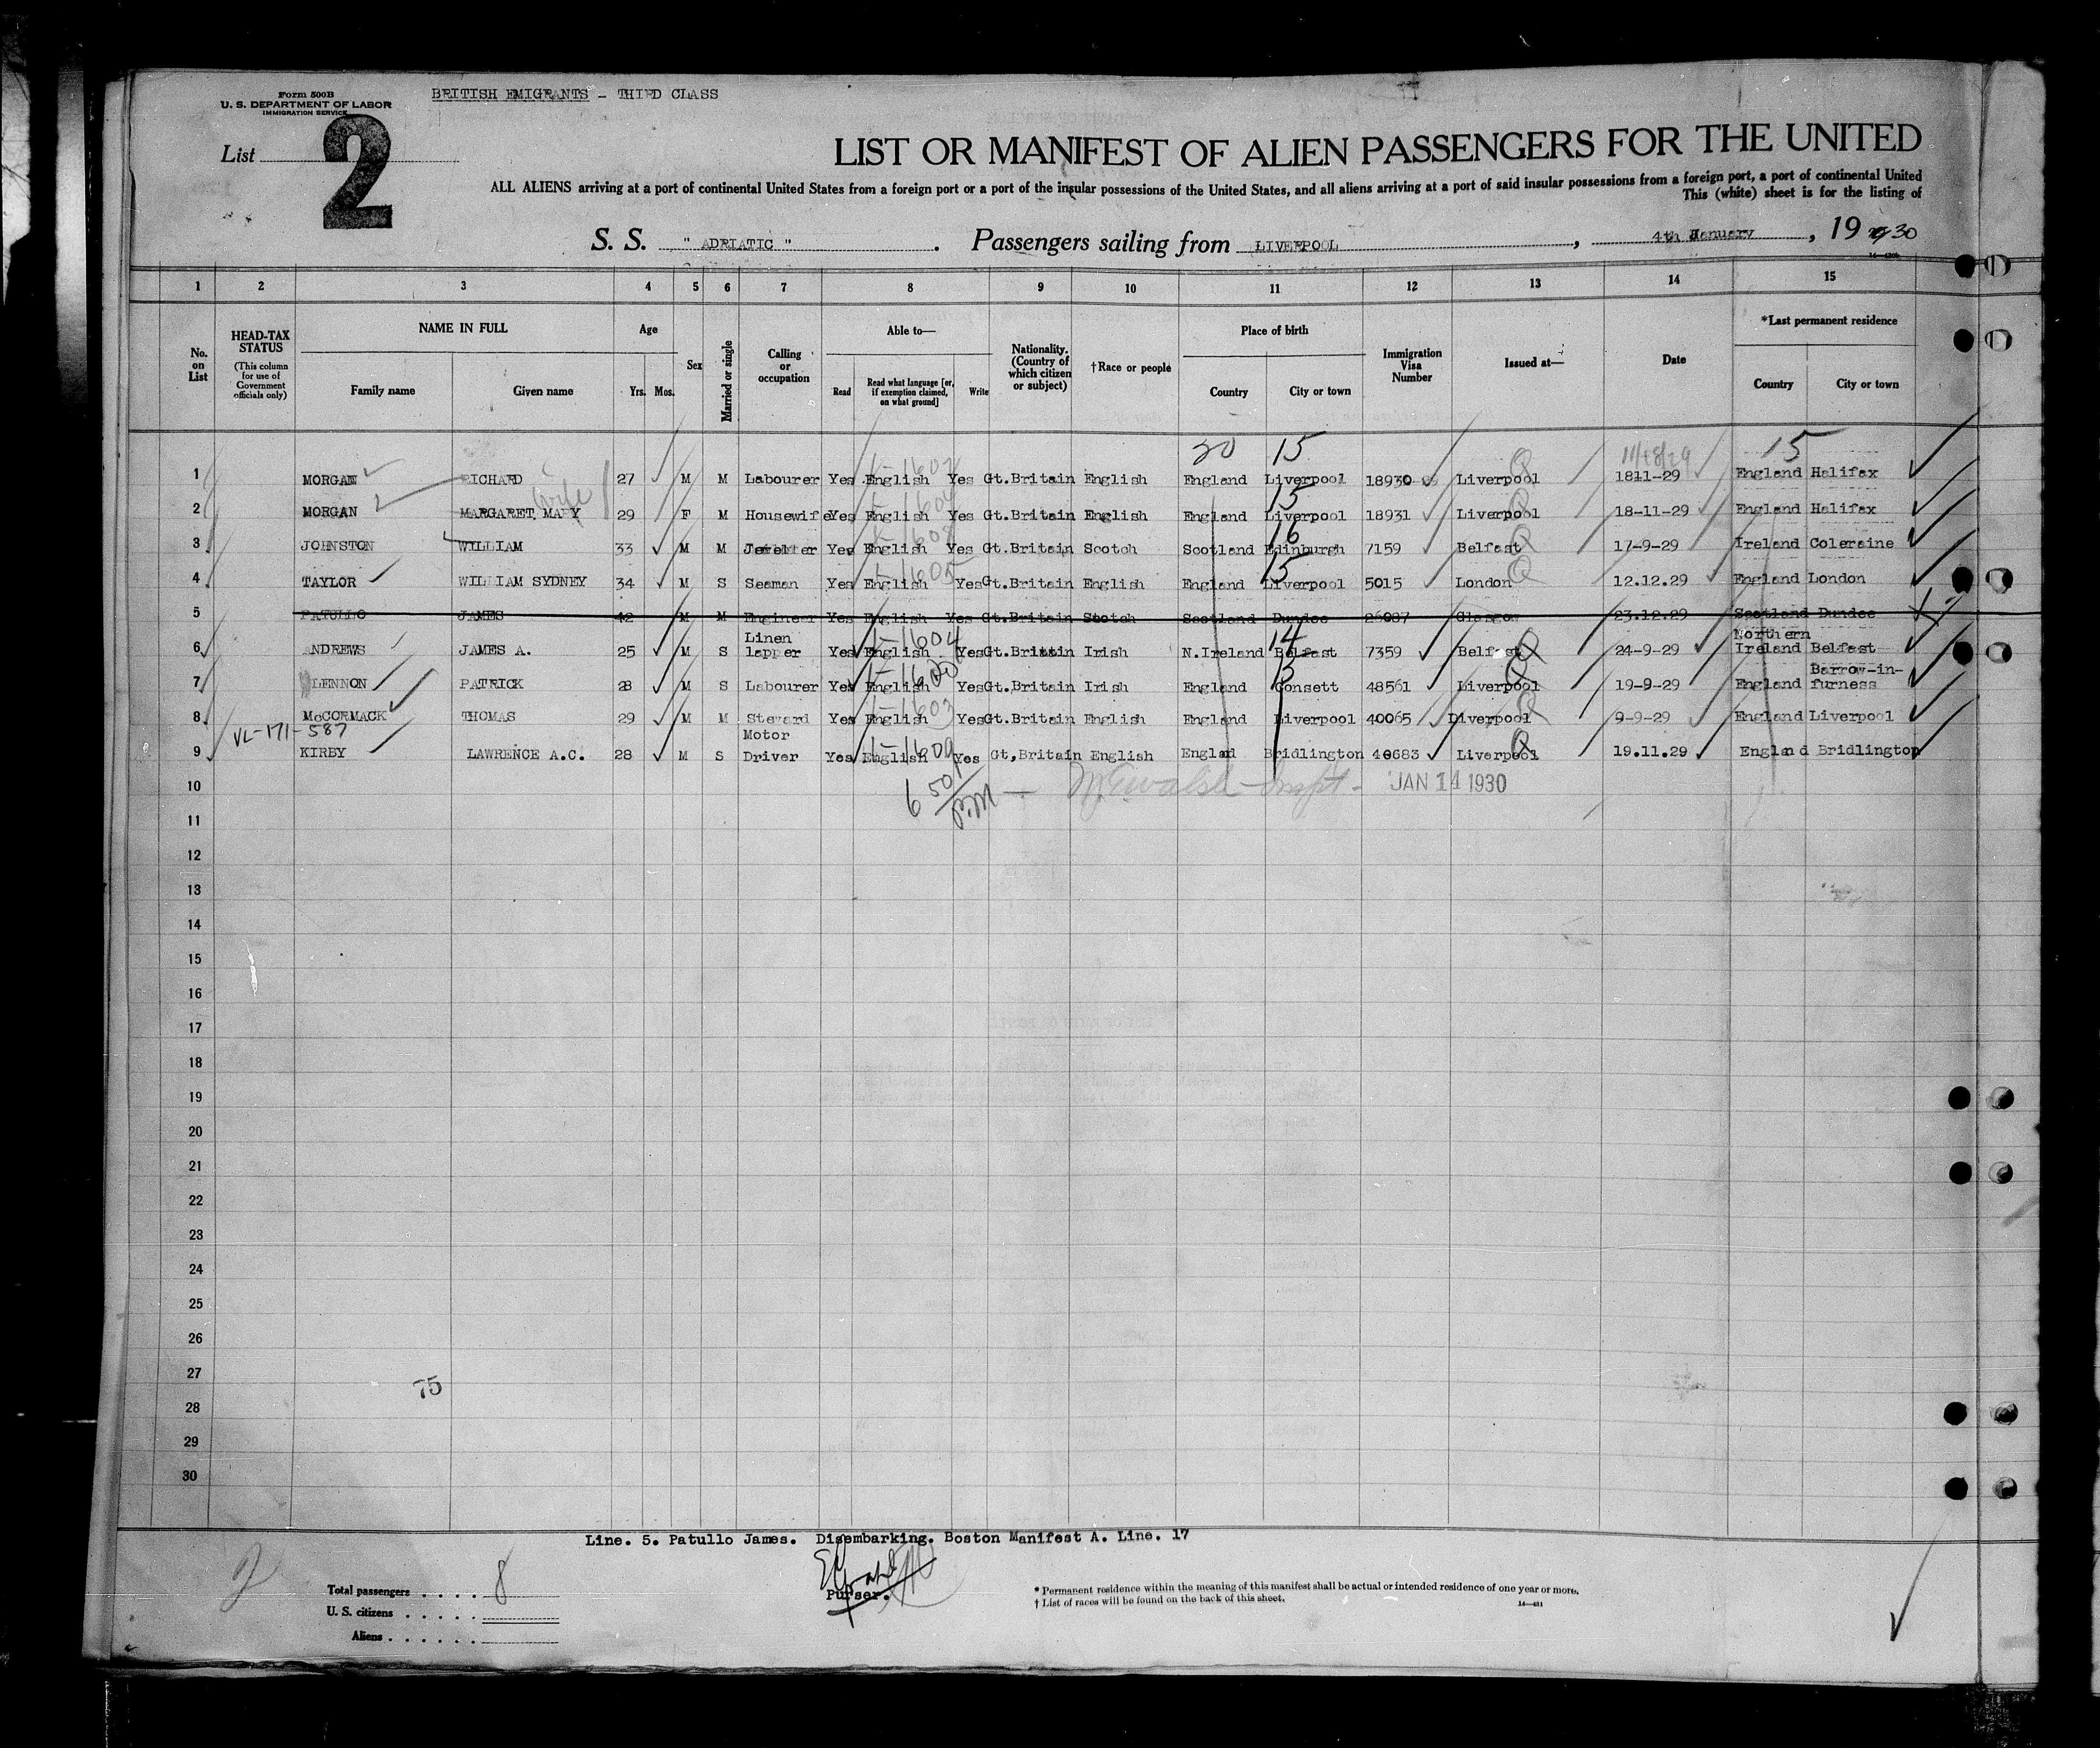 Form 500B
U. S. DEPARTMENT OF LABOR
IMMIGRATION SERVICE
BRITISH EMIGRANTS - THIRD CLASS
List 2
LIST OR MANIFEST OF ALIEN PASSENGERS FOR THE UNITED
ALL ALIENS arriving at a port of continental United States from a foreign port or a port of the insular possessions of the United States, and all aliens arriving at a port of said insular possessions from a foreign port, a port of continental United
This (white) sheet is for the listing of
S. S. " ADRIATIC ". Passengers sailing from LIVERPOOL, 4th January, 19 30
1 2 3 4 5 6 7 8 9 10 11 12 13 14 15
No. on List HEAD-TAX STATUS (This column for use of Government officials only) NAME IN FULL Family name Given name Age Yrs. Mos. Sex Married or single Calling or occupation Able to— Read Read what language [or, if exemption claimed, on what ground] Write Nationality. (Country of which citizen or subject) †Race or people Place of birth Country City or town Immigration Visa Number Issued at— Date *Last permanent residence Country City or town
20 15 11/18/29 15
1 MORGAN RICHARD 27 M M Labourer Yes English Yes Gt.Britain English England Liverpool 18930 Liverpool 1811-29 England Halifax
wife 15
2 MORGAN MARGARET MARY 29 F M Housewife Yes English Yes Gt.Britain English England Liverpool 18931 Liverpool 18-11-29 England Halifax
16
3 JOHNSTON WILLIAM 33 M M Jeweller Yes English Yes Gt.Britain Scotch Scotland Edinburgh 7159 Belfast 17-9-29 Ireland Coleraine
15
4 TAYLOR WILLIAM SYDNEY 34 M S Seaman Yes English Yes Gt.Britain English England Liverpool 5015 London 12.12.29 England London
5 PATULLO JAMES 42 M M Engineer Yes English Yes Gt.Britain Scotch Scotland Dundee 26087 Glasgow 23.12.29 Scotland Dundee
Linen 14 Northern
6 ANDREWS JAMES A. 25 M S lapper Yes English Yes Gt.Britain Irish N.Ireland Belfast 7359 Belfast 24-9-29 Ireland Belfast
3 Barrow-in-
7 LENNON PATRICK 28 M S Labourer Yes English Yes Gt.Britain Irish England Consett 48561 Liverpool 19-9-29 England furness
8 McCORMACK THOMAS 29 M M Steward Yes English Yes Gt.Britain English England Liverpool 40065 Liverpool 9-9-29 England Liverpool
VL-171-587 Motor
9 KIRBY LAWRENCE A.C. 28 M S Driver Yes English Yes Gt,Britain English England Bridlington 40683 Liverpool 19.11.29 England Bridlington
10 6 50 P.M — JAN 14 1930
11
12
13
14
15
16
17
18
19
20
21
22
23
24
25
26
27
75
28
29
30
Line. 5. Patullo James. Disembarking. Boston Manifest A. Line. 17
2
Total passengers . . . . 8
U. S. citizens . . . . .
Aliens . . . . . .
Purser.
* Permanent residence within the meaning of this manifest shall be actual or intended residence of one year or more.
† List of races will be found on the back of this sheet.
14—431